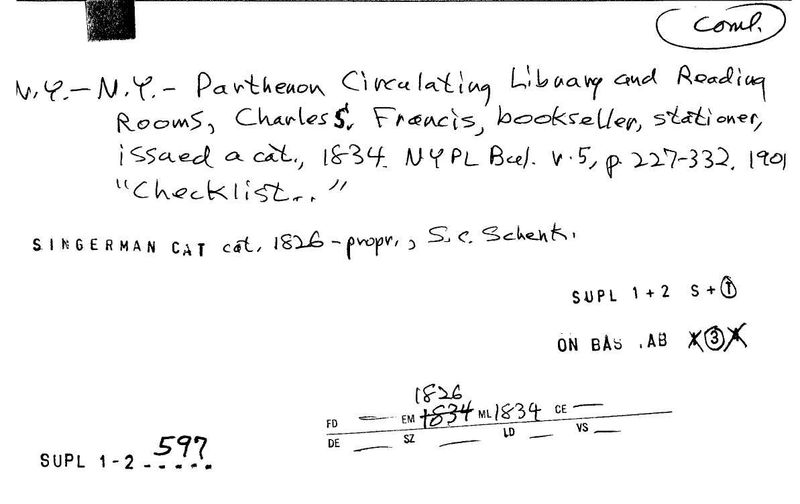 Coml.
N.Y.-N.Y.- Parthenon Circulating Library and Reading
Rooms, Charles S. Francis, bookseller, stationer,
issued a cat., 1834. NYPL Bul. v.5, p. 227-332, 1901
"Checklist..."
SINGERMAN CAT cat. 1826-propr., S.C. Schenk.
SUPL 1+2 S+T
ON BAS .AB X 3 X
1826
FD — EM 1834 ML 1834 CE —
DE — SZ — LD — VS —
SUPL 1-2 597